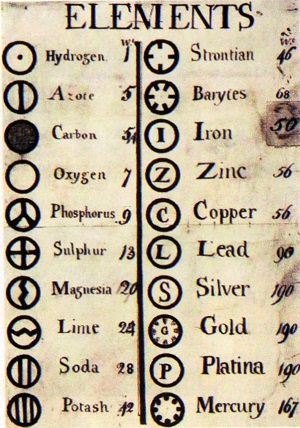 ELEMENTS
Wt
Hydrogen. 1
Azote 5
Carbon 54
Oxygen 7
Phosphorus 9
Sulphur 13
Magnesia 20
Lime 24
Soda 28
Potash 42
Wt
Strontian 46
Barytes 68
I Iron 50
Z Zinc 56
C Copper 56
L Lead 90
S Silver 190
G Gold 190
P Platina 190
Mercury 167